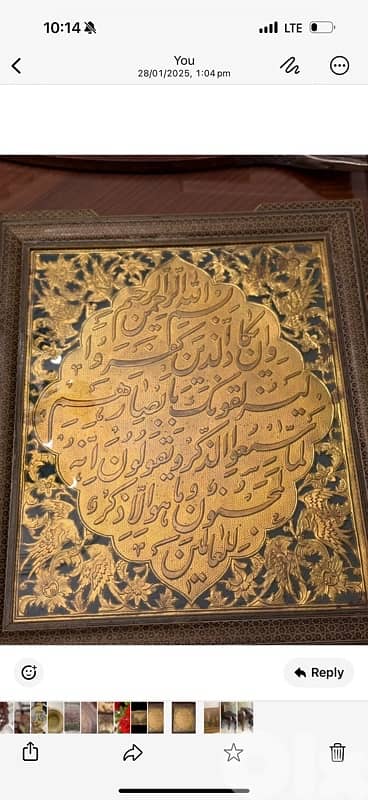 10:14
LTE
You
28/01/2025, 1:04 pm
بسم الله الرحمن الرحيم
وإن يكاد الذين كفروا
ليزلقونك بأبصارهم
لما سمعوا الذكر ويقولون إنه
لمجنون وما هو إلا ذكر
للعالمين
Reply